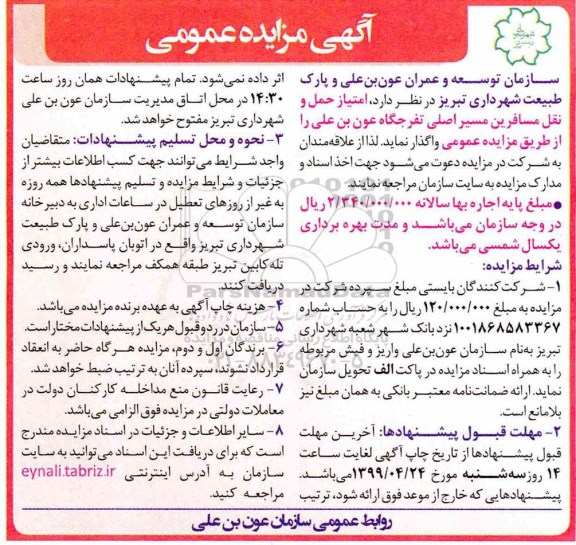 آگهی مزایده عمومی
شهرداری تبریز
سازمان توسعه و عمران عون‌بن‌علی و پارک
طبیعت شهرداری تبریز در نظر دارد، امتیاز حمل و
نقل مسافرین مسیر اصلی تفرجگاه عون بن علی را
از طریق مزایده عمومی واگذار نماید. لذا از علاقه‌مندان
به شرکت در مزایده دعوت می‌شود جهت اخذ اسناد و
مدارک مزایده به سایت سازمان مراجعه نمایند
●مبلغ پایه اجاره بها سالانه ۲/۳۴۰/۰۰۰/۰۰۰ ریال
در وجه سازمان می‌باشد و مدت بهره برداری
یکسال شمسی می‌باشد.
شرایط مزایده:
۱- شرکت‌کنندگان بایستی مبلغ سپرده شرکت در
مزایده به مبلغ ۱۲۰/۰۰۰/۰۰۰ ریال را به حساب شماره
۱۰۰۱۸۶۸۵۸۳۳۶۷ نزد بانک شهر شعبه شهرداری
تبریز به‌نام سازمان عون‌بن‌علی واریز و فیش مربوطه
را به همراه اسناد مزایده در پاکت الف تحویل سازمان
نماید. ارائه ضمانت‌نامه معتبر بانکی به همان مبلغ نیز
بلامانع است.
۲- مهلت قبول پیشنهادها: آخرین مهلت
قبول پیشنهادها از تاریخ چاپ آگهی لغایت ساعت
۱۴ روز سه‌شنبه مورخ ۱۳۹۹/۰۴/۲۴ می‌باشد.
پیشنهادهایی که خارج از موعد فوق ارائه شود، ترتیب
اثر داده نمی‌شود. تمام پیشنهادات همان روز ساعت
۱۴:۳۰ در محل اتاق مدیریت سازمان عون بن علی
شهرداری تبریز مفتوح خواهد شد.
۳- نحوه و محل تسلیم پیشنهادات: متقاضیان
واجد شرایط می‌توانند جهت کسب اطلاعات بیشتر از
جزئیات و شرایط مزایده و تسلیم پیشنهادها همه روزه
به غیر از روزهای تعطیل در ساعات اداری به دبیرخانه
سازمان توسعه و عمران عون‌بن‌علی و پارک طبیعت
شهرداری تبریز واقع در اتوبان پاسداران، ورودی
تله‌کابین تبریز طبقه همکف مراجعه نمایند و رسید
دریافت کنند.
۴- هزینه چاپ آگهی به عهده برنده مزایده می‌باشد.
۵- سازمان در رد و قبول هر یک از پیشنهادات مختار است.
۶- برندگان اول و دوم، مزایده هرگاه حاضر به انعقاد
قرارداد نشوند، سپرده آنان به ترتیب ضبط خواهد شد.
۷- رعایت قانون منع مداخله کارکنان دولت در
معاملات دولتی در مزایده فوق الزامی می‌باشد.
۸- سایر اطلاعات و جزئیات در اسناد مزایده مندرج
است که برای دریافت این اسناد می‌توانید به سایت
سازمان به آدرس اینترنتی eynali.tabriz.ir
مراجعه کنید.
روابط عمومی سازمان عون بن علی
ParsNamadData